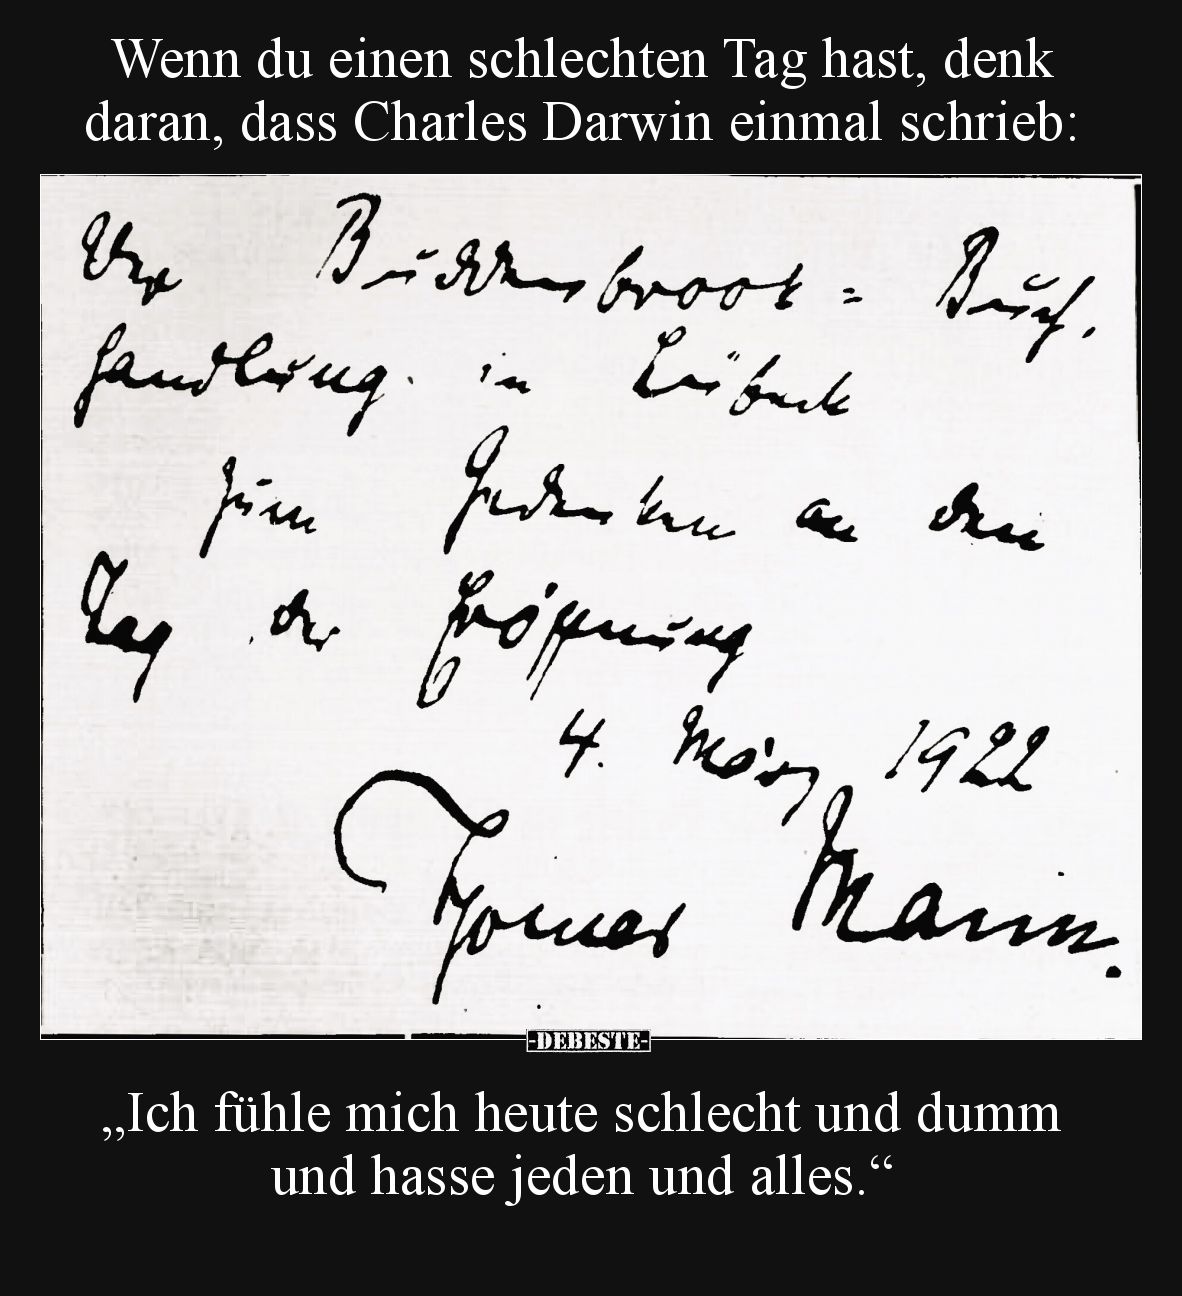 Wenn du einen schlechten Tag hast, denk
daran, dass Charles Darwin einmal schrieb:
Der Buddenbrook = Buch,
handlung in Lübeck
zum Gedenken an den
Tag der Eröffnung
4. März 1922
Thomas Mann.
-DEBESTE-
„Ich fühle mich heute schlecht und dumm
und hasse jeden und alles.“